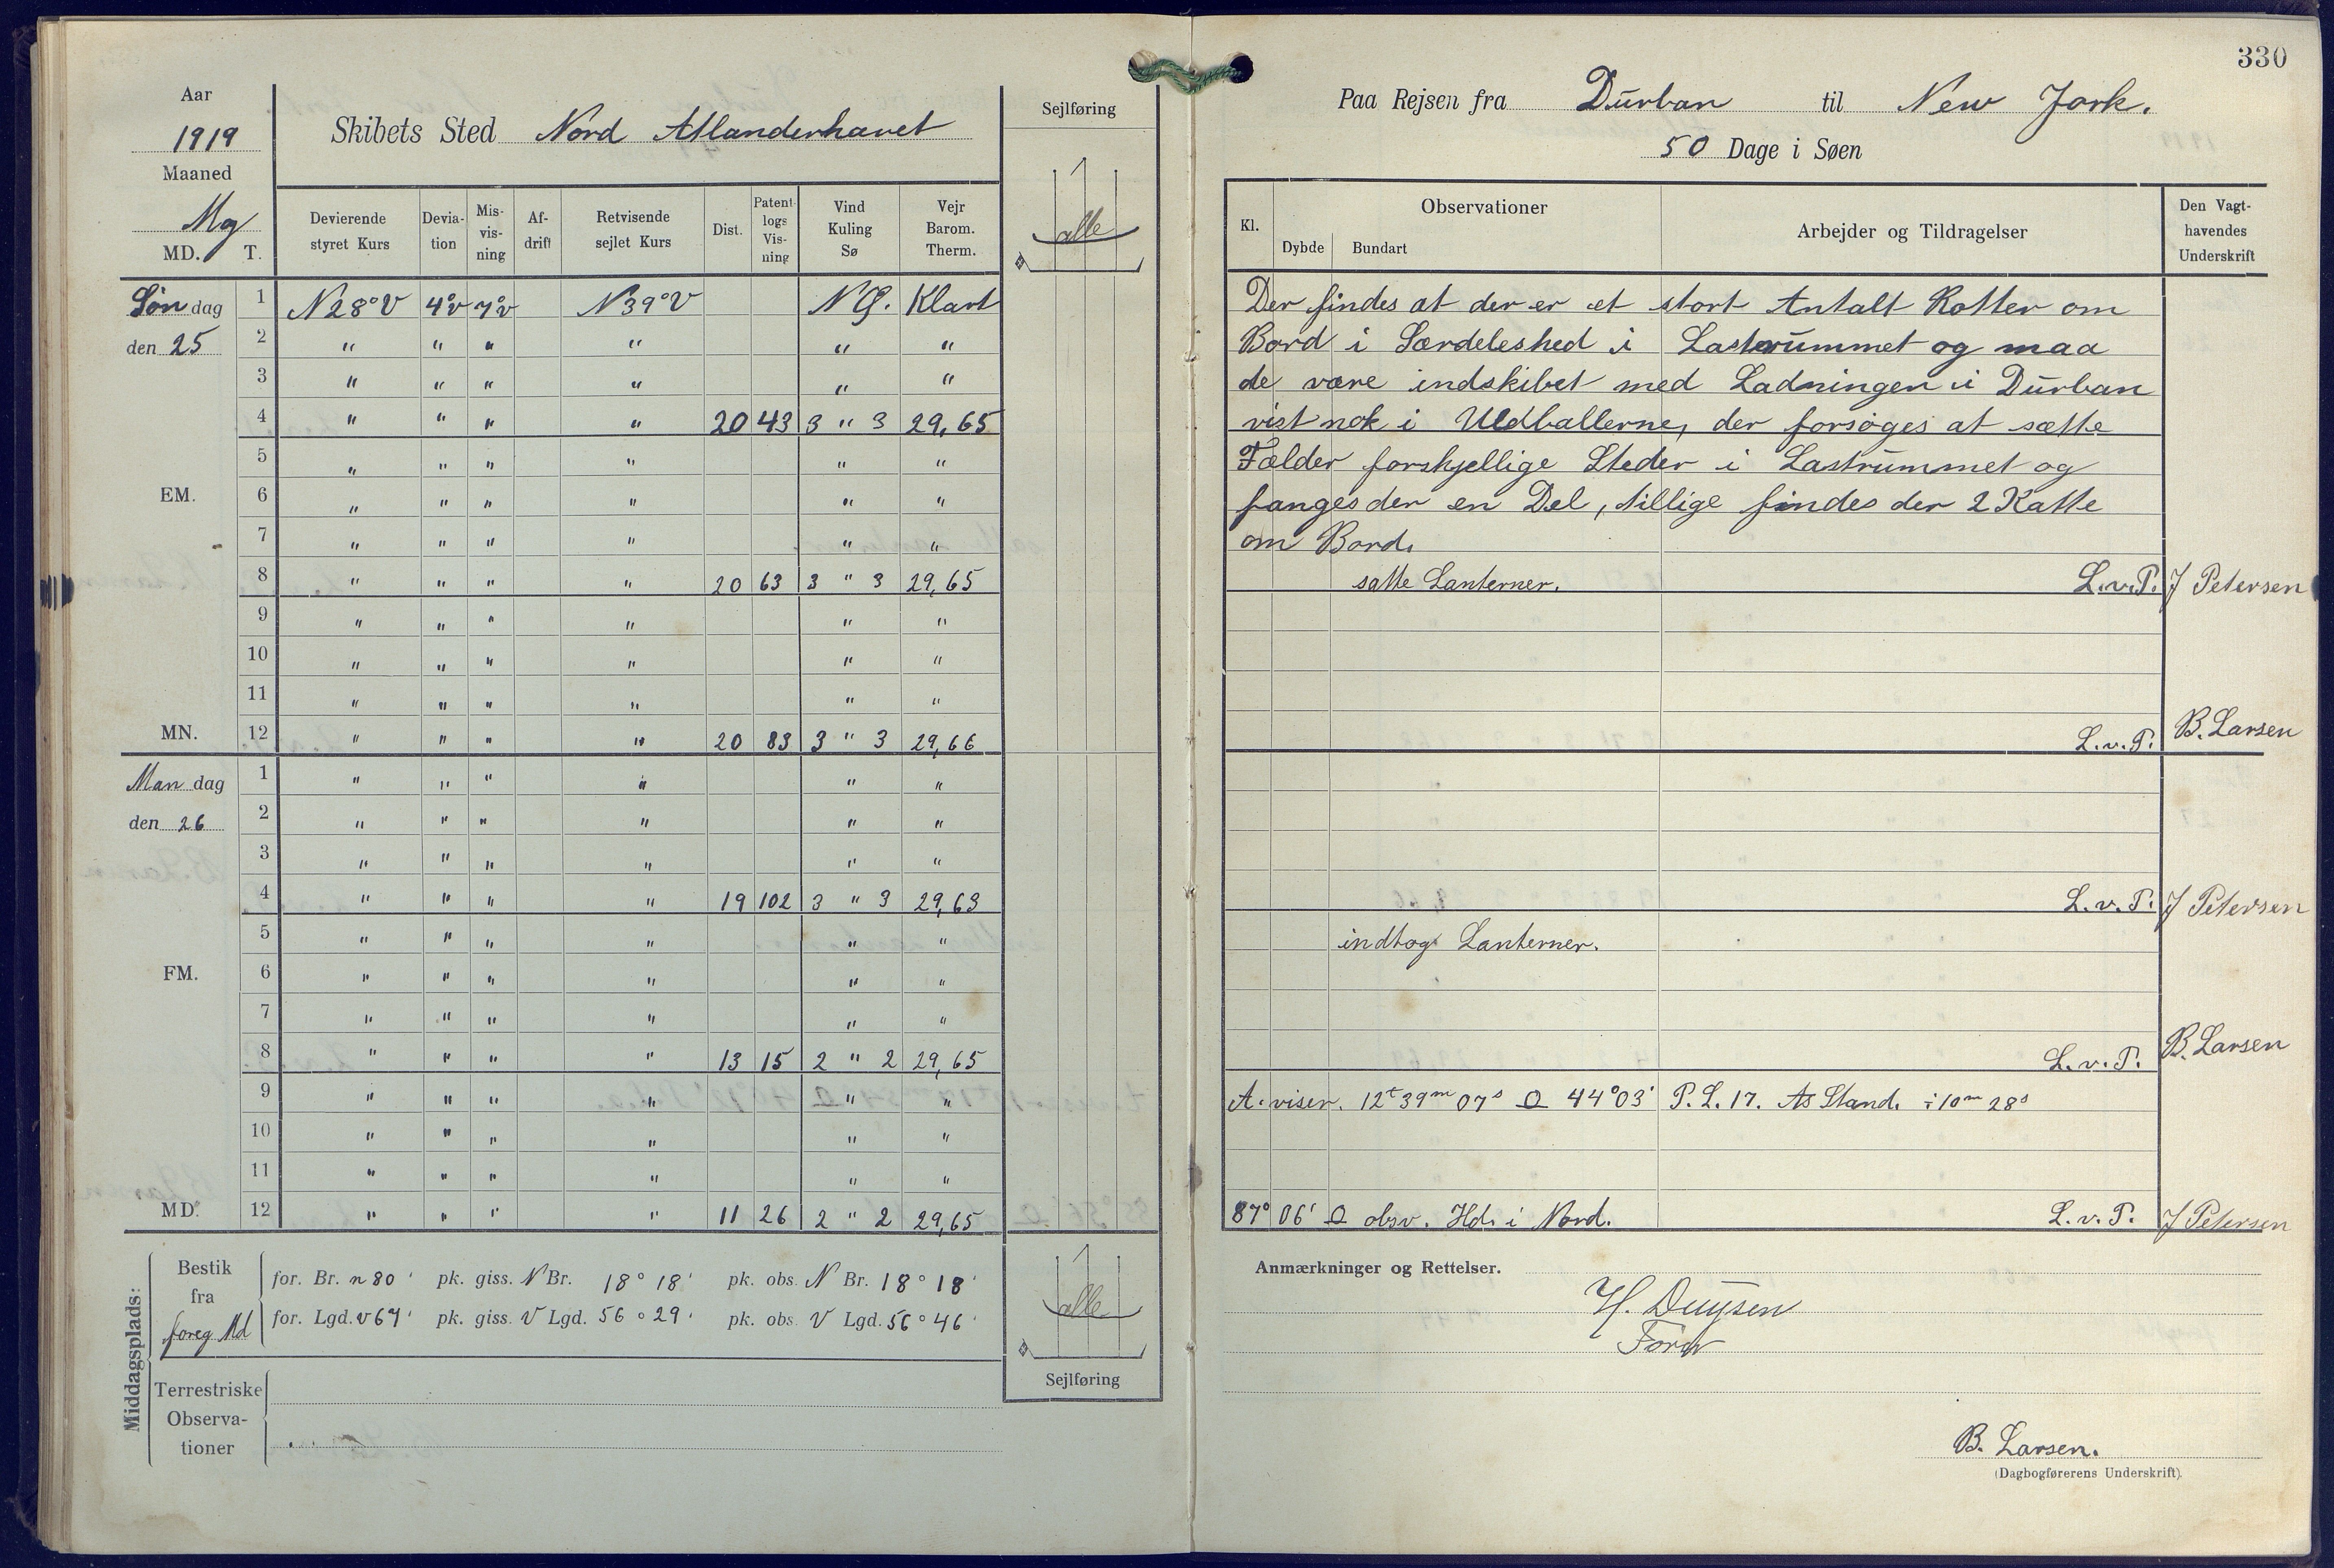 Aar
1919
Maaned
Maj
MD. T.
Skibets Sted Nord Atlanderhavet
Sejlføring
Devierende styret Kurs | Devia-tion | Mis-vis-ning | Af-drift | Retvisende sejlet Kurs | Dist. | Patent-logs Vis-ning | Vind Kuling Sø | Vejr Barom. Therm.
alle
Søn dag 1 N28°V 4°V 7°V N39°V NO. Klart
den 25 2 " " " " " "
3 " " " " " "
4 " " " " 20 43 3 " 3 29,65
5 " " " " " "
EM. 6 " " " " " "
7 " " " " " "
8 " " " " 20 63 3 " 3 29,65
9 " " " " " "
10 " " " " " "
11 " " " " " "
MN. 12 " " " " 20 83 3 " 3 29,66
Man dag 1 " " " " " "
den 26 2 " " " " " "
3 " " " " " "
4 " " " " 19 102 3 " 3 29,63
5 " " " " " "
FM. 6 " " " " " "
7 " " " " " "
8 " " " " 13 15 2 " 2 29,65
9 " " " " " "
10 " " " " " "
11 " " " " " "
MD. 12 " " " " 11 26 2 " 2 29,65
Middagsplads:
Bestik fra foreg Md
for. Br. n 80' pk. giss. N Br. 18° 18' pk. obs. N Br. 18° 18'
for. Lgd. v 67' pk. giss. V Lgd. 56° 29' pk. obs. V Lgd. 56° 46'
alle
Sejlføring
Terrestriske
Observa-
tioner
330
Paa Rejsen fra Durban til New York.
50 Dage i Søen
Kl. | Observationer | Dybde | Bundart | Arbejder og Tildragelser | Den Vagt-havendes Underskrift
Der findes at der er et stort Antalt Rotter om
Bord i Særdeleshed i Lastrummet og maa
de være indskibet med Ladningen i Durban
vist nok i Uldballerne, der forsøges at sætte
Fælder forskjellige Steder i Lastrummet og
fanges der en Del, tillige findes der 2 Katte
om Bord.
satte Lanterner. L.v.P. J Petersen
L.v.P. B. Larsen
L.v.P. J Petersen
indtog Lanterner.
L.v.P. B. Larsen
A. viser. 12t 39m 07s O 44°03' P.L. 17. As Stand. ÷ 10m 28s
87° 06' O obsv. Hd. i Nord. L.v.P. J Petersen
Anmærkninger og Rettelser.
H. Duysen
Fører
B. Larsen.
(Dagbogførerens Underskrift).